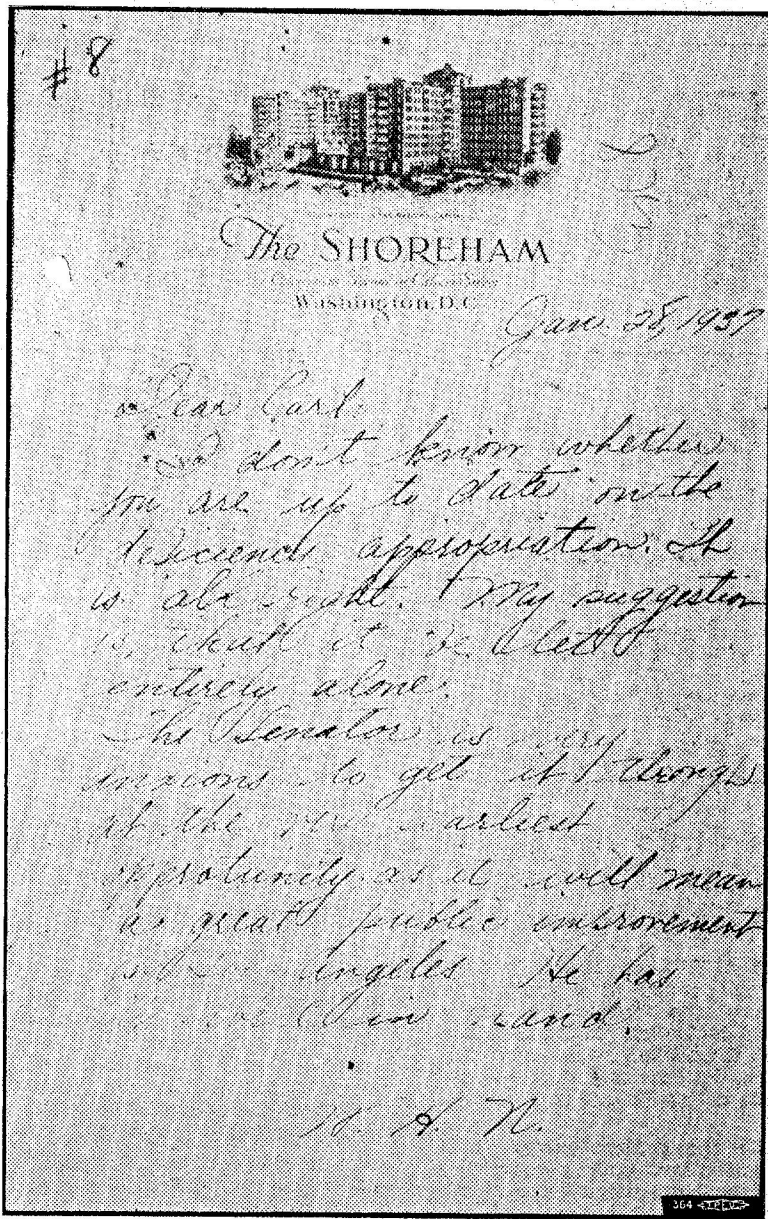 # 8
The SHOREHAM
Washington, D.C.
Jan. 28, 1937
Dear Carl:
I don't know whether
you are up to date on the
deficiency appropriation. It
is all right. My suggestion
is that it be let
entirely alone.
The Senator is very
anxious to get it through
at the very earliest
opprotunity as it will mean
a great public improvement
Angeles He has
in hand.
H. A. N.
364